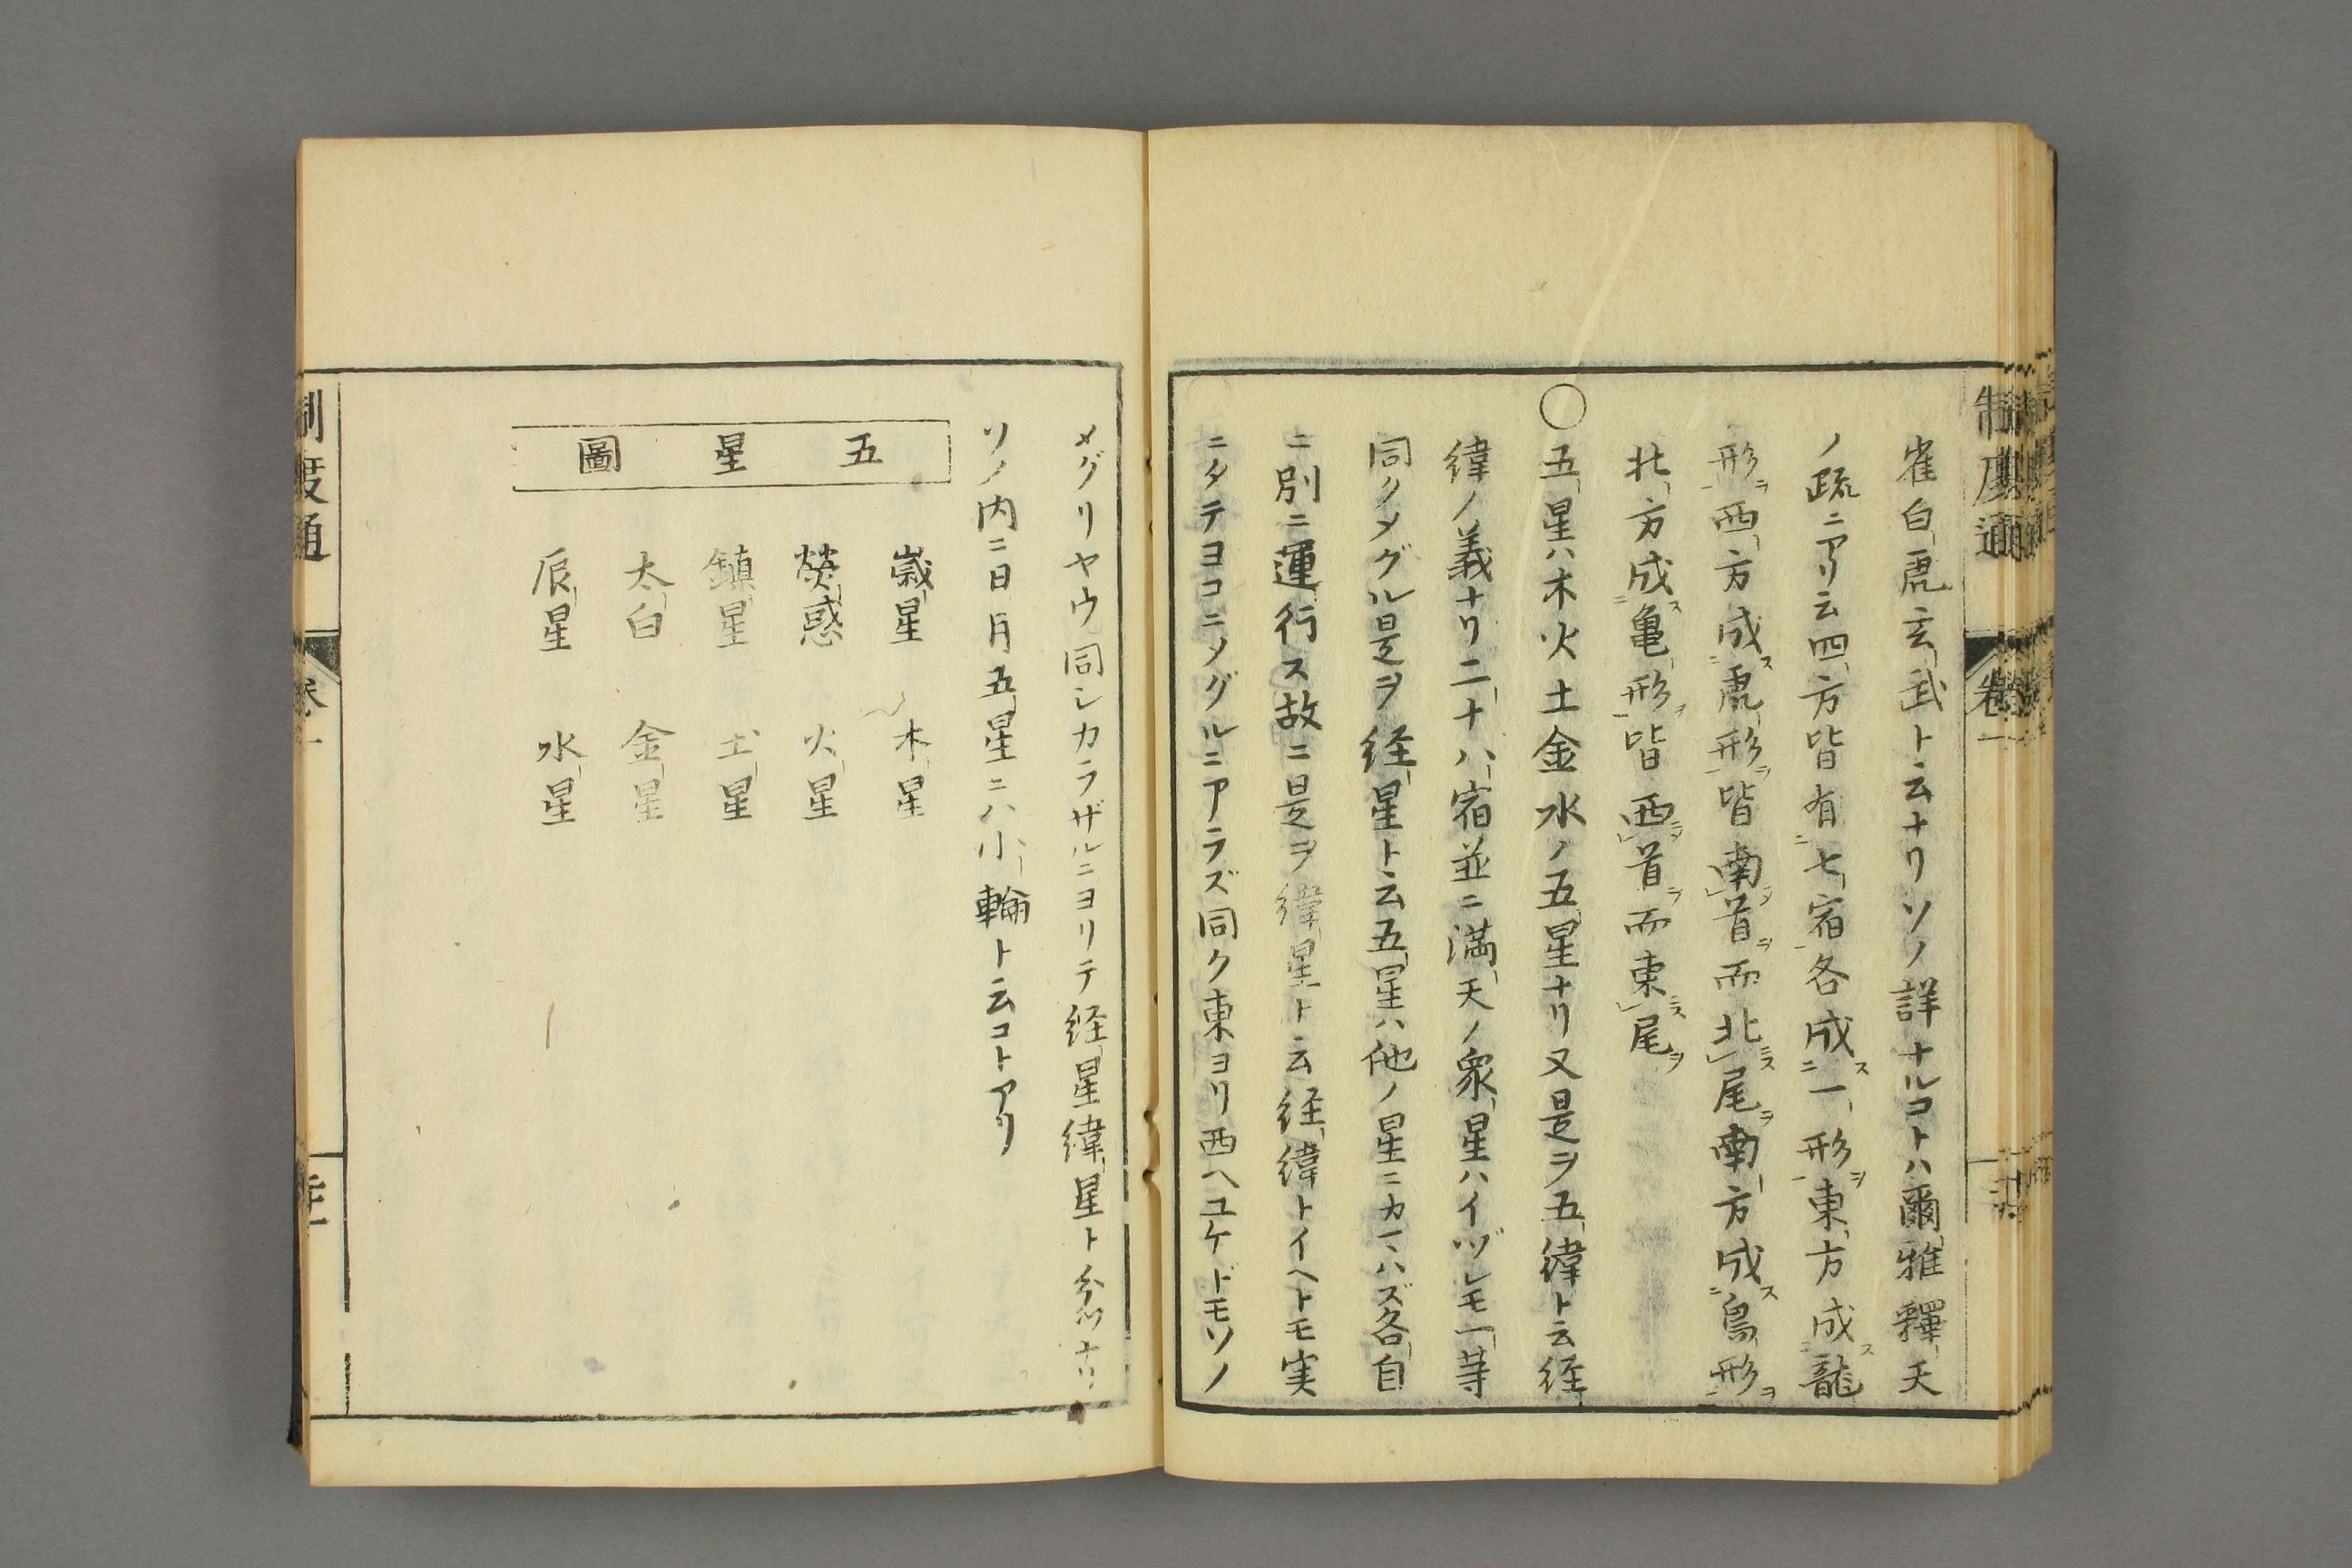 制度通
卷一
雀白虎玄武ト云ナリソノ詳ナルコトハ爾雅釋天
ノ疏ニアリ云四方皆有七宿各成一形東方成龍
形西方成虎形皆南首而北尾南方成鳥形
北方成亀形皆西首而東尾
○五星ハ木火土金水ノ五星ナリ又是ヲ五緯ト云経
緯ノ義ナリ二十八宿並ニ満天ノ衆星ハイヅレモ一等
同クメグル是ヲ経星ト云五星ハ他ノ星ニカマハズ各自
ニ別ニ運行ス故ニ是ヲ緯星ト云経緯トイヘトモ実
ニタテヨコニメグルニアラズ同ク東ヨリ西ヘユケドモソノ
メグリヤウ同シカラザルニヨリテ経星緯星ト分ツナリ
ソノ内ニ日月五星ニハ小輪ト云コトアリ
五星圖
歳星 木星
熒惑 火星
鎮星 土星
太白 金星
辰星 水星
制度通
卷一